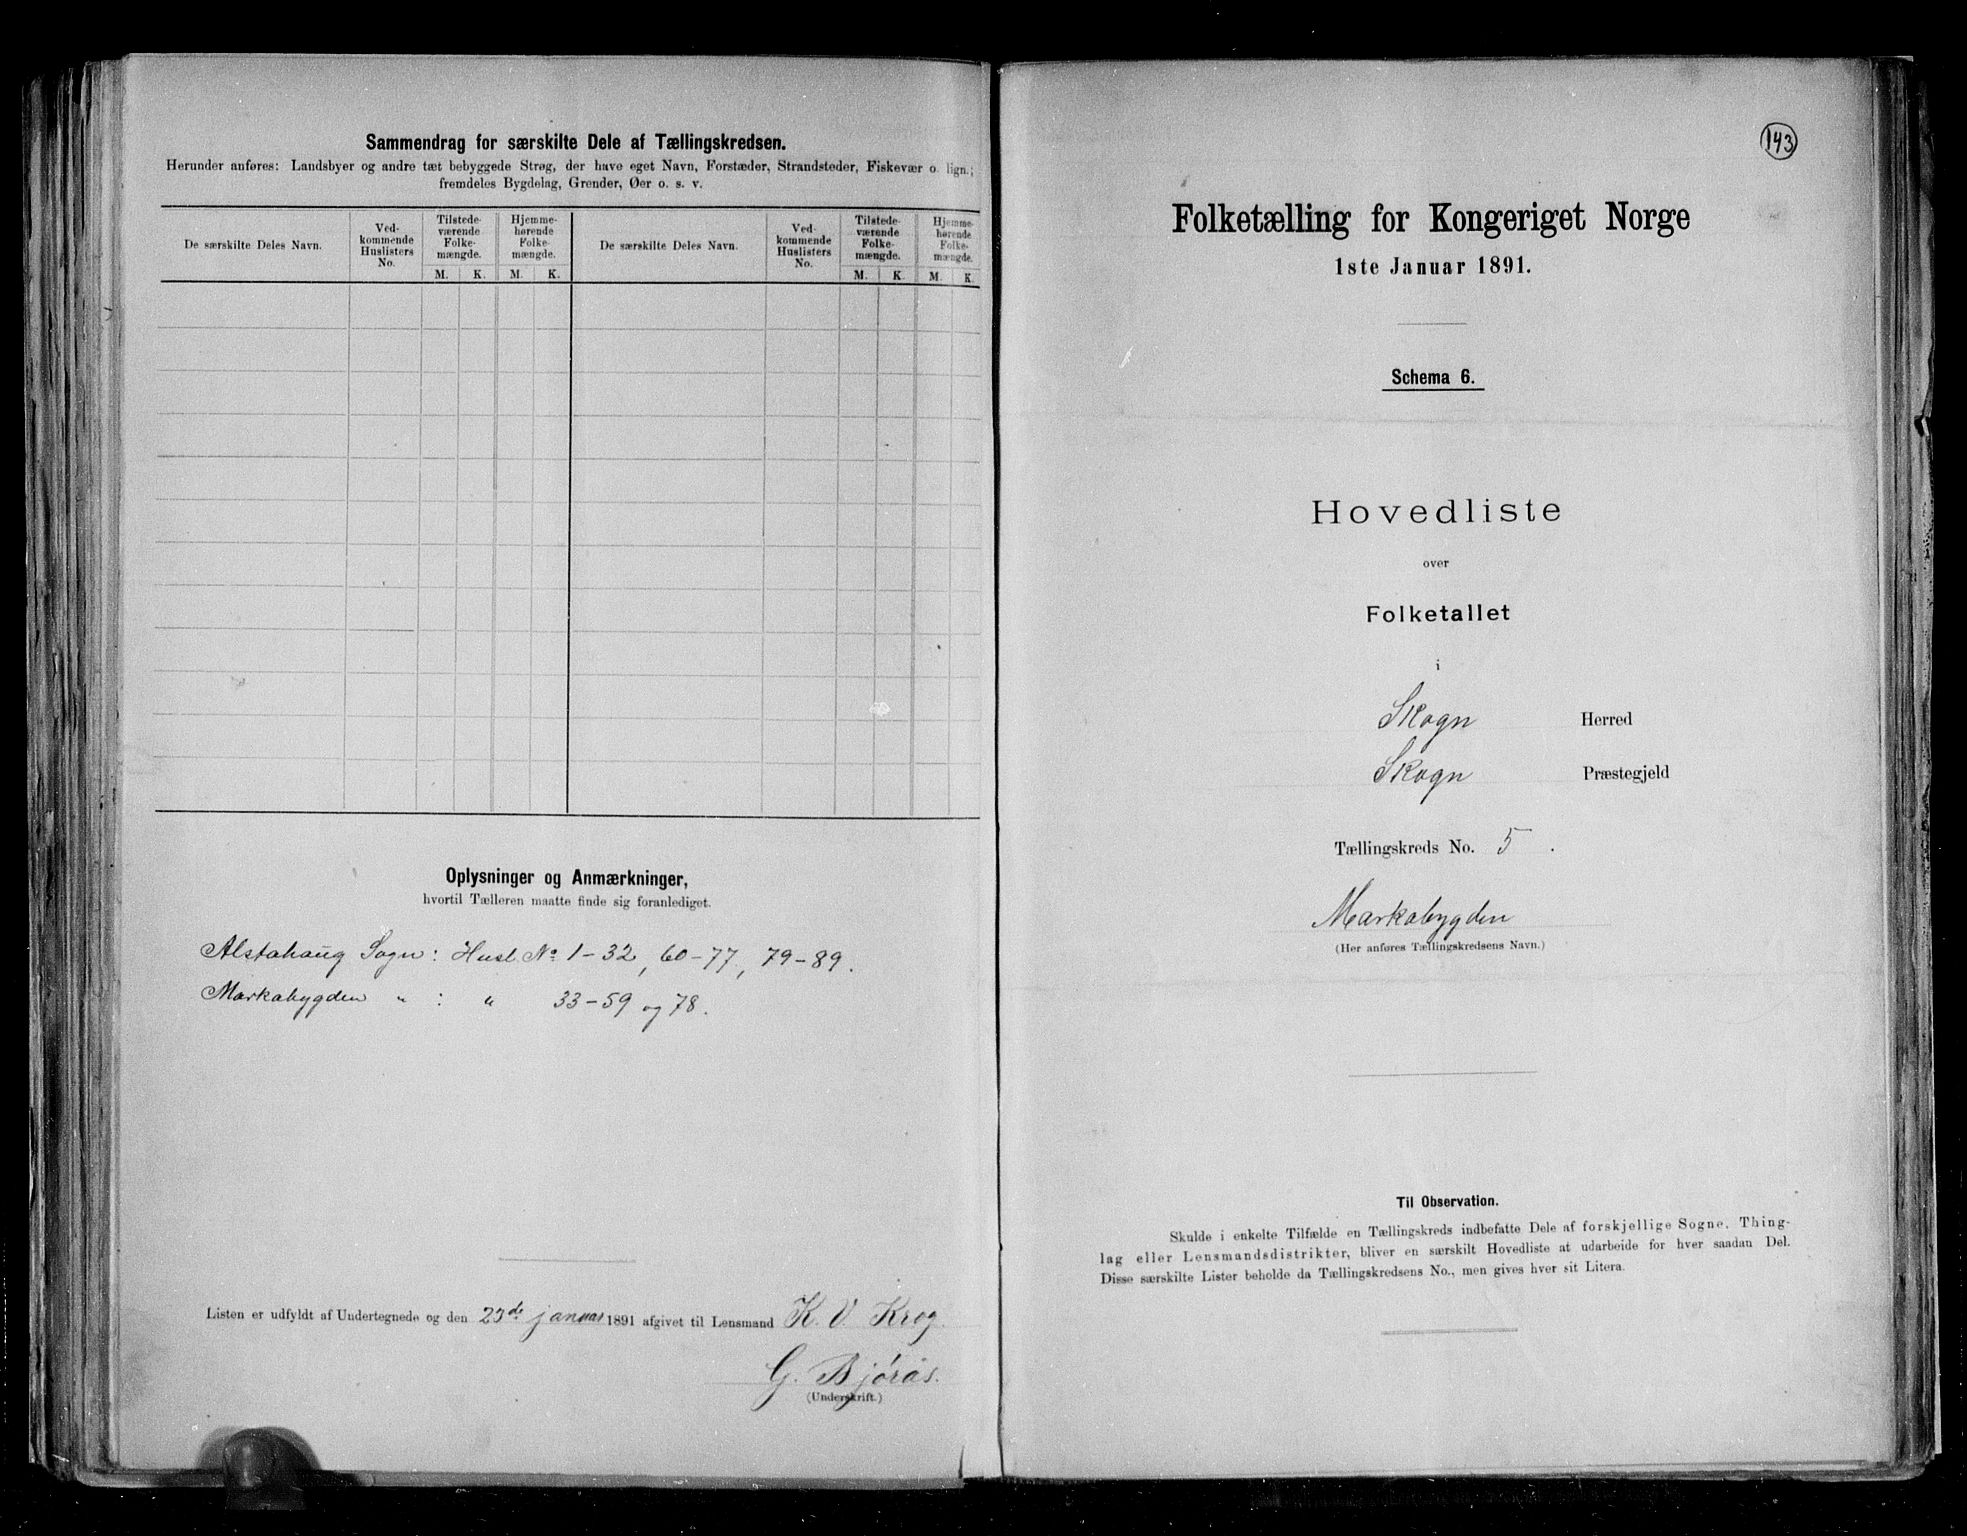 Sammendrag for særskilte Dele af Tællingskredsen.
Herunder anføres: Landsbyer og andre tæt bebyggede Strøg, der have eget Navn, Forstæder, Strandsteder, Fiskevær o. lign.;
fremdeles Bygdelag, Grender, Øer o. s. v.
De særskilte Deles Navn.
Ved-
kommende
Huslisters
No.
Tilstede-
værende
Folke-
mængde.
M. K.
Hjemme-
hørende
Folke-
mængde.
M. K.
De særskilte Deles Navn.
Ved-
kommende
Huslisters
No.
Tilstede-
værende
Folke-
mængde.
M. K.
Hjemme-
hørende
Folke-
mængde.
M. K.
Oplysninger og Anmærkninger,
hvortil Tælleren maatte finde sig foranlediget.
Alstahaug Sogn: Husl. No 1-32, 60-77, 79-89.
Markabygden " : " 33-59 og 78.
Listen er udfyldt af Undertegnede og den 23de januar 1891 afgivet til Lensmand K. V. Krog.
G. Bjørås.
(Underskrift.)
143
Folketælling for Kongeriget Norge
1ste Januar 1891.
Schema 6.
Hovedliste
over
Folketallet
i
Skogn Herred
Skogn Præstegjeld
Tællingskreds No. 5.
Markabygden
(Her anføres Tællingskredsens Navn.)
Til Observation.
Skulde i enkelte Tilfælde en Tællingskreds indbefatte Dele af forskjellige Sogne, Thing-
lag eller Lensmandsdistrikter, bliver en særskilt Hovedliste at udarbeide for hver saadan Del.
Disse særskilte Lister beholde da Tællingskredsens No., men gives hver sit Litera.